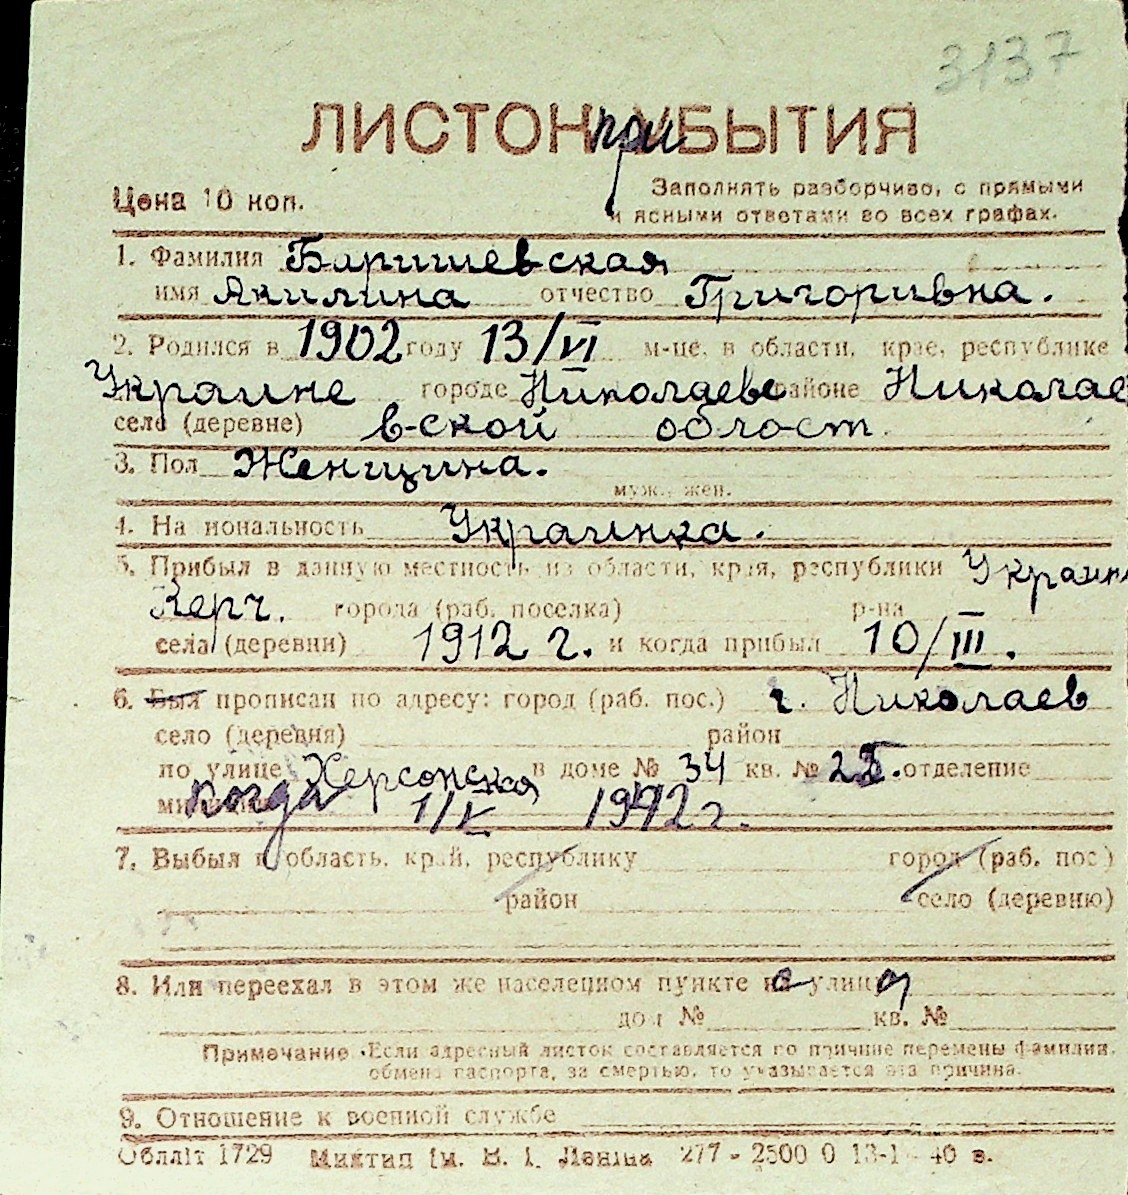 3137
ЛИСТОК при БЫТИЯ
Цена 10 коп.
Заполнять разборчиво, с прямыми
и ясными ответами во всех графах.
1. Фамилия Баришевская
имя Акилина отчество Григоривна.
2. Родился в 1902 году 13/VI м-це, в области, крае, республике
Украине городе Николаеве районе Николае
село (деревне) в-ской область
3. Пол Женщина.
муж., жен.
4. На иональность Украинка.
5. Прибыл в данную местность из области, края, республики Украин
Керч. города (раб. поселка) р-на
села (деревни) 1912 г. и когда прибыл 10/III.
6. Был прописан по адресу: город (раб. пос.) г. Николаев
село (деревня) район
по улице Херсонская в доме № 34 кв. № отделение
когда 1/V 1942 г.
7. Выбыл в область, край, республику город (раб. пос.)
район село (деревню)
8. Или переехал в этом же населенном пункте с улицы
дом № кв. №
Примечание. Если адресный листок составляется по причине перемены фамилии,
обмена паспорта, за смертью, то указывается эта причина.
9. Отношение к военной службе
Oблліт 1729 Миктип ім. В. І. Леніна 277 - 2500 0 13-1 - 40 в.